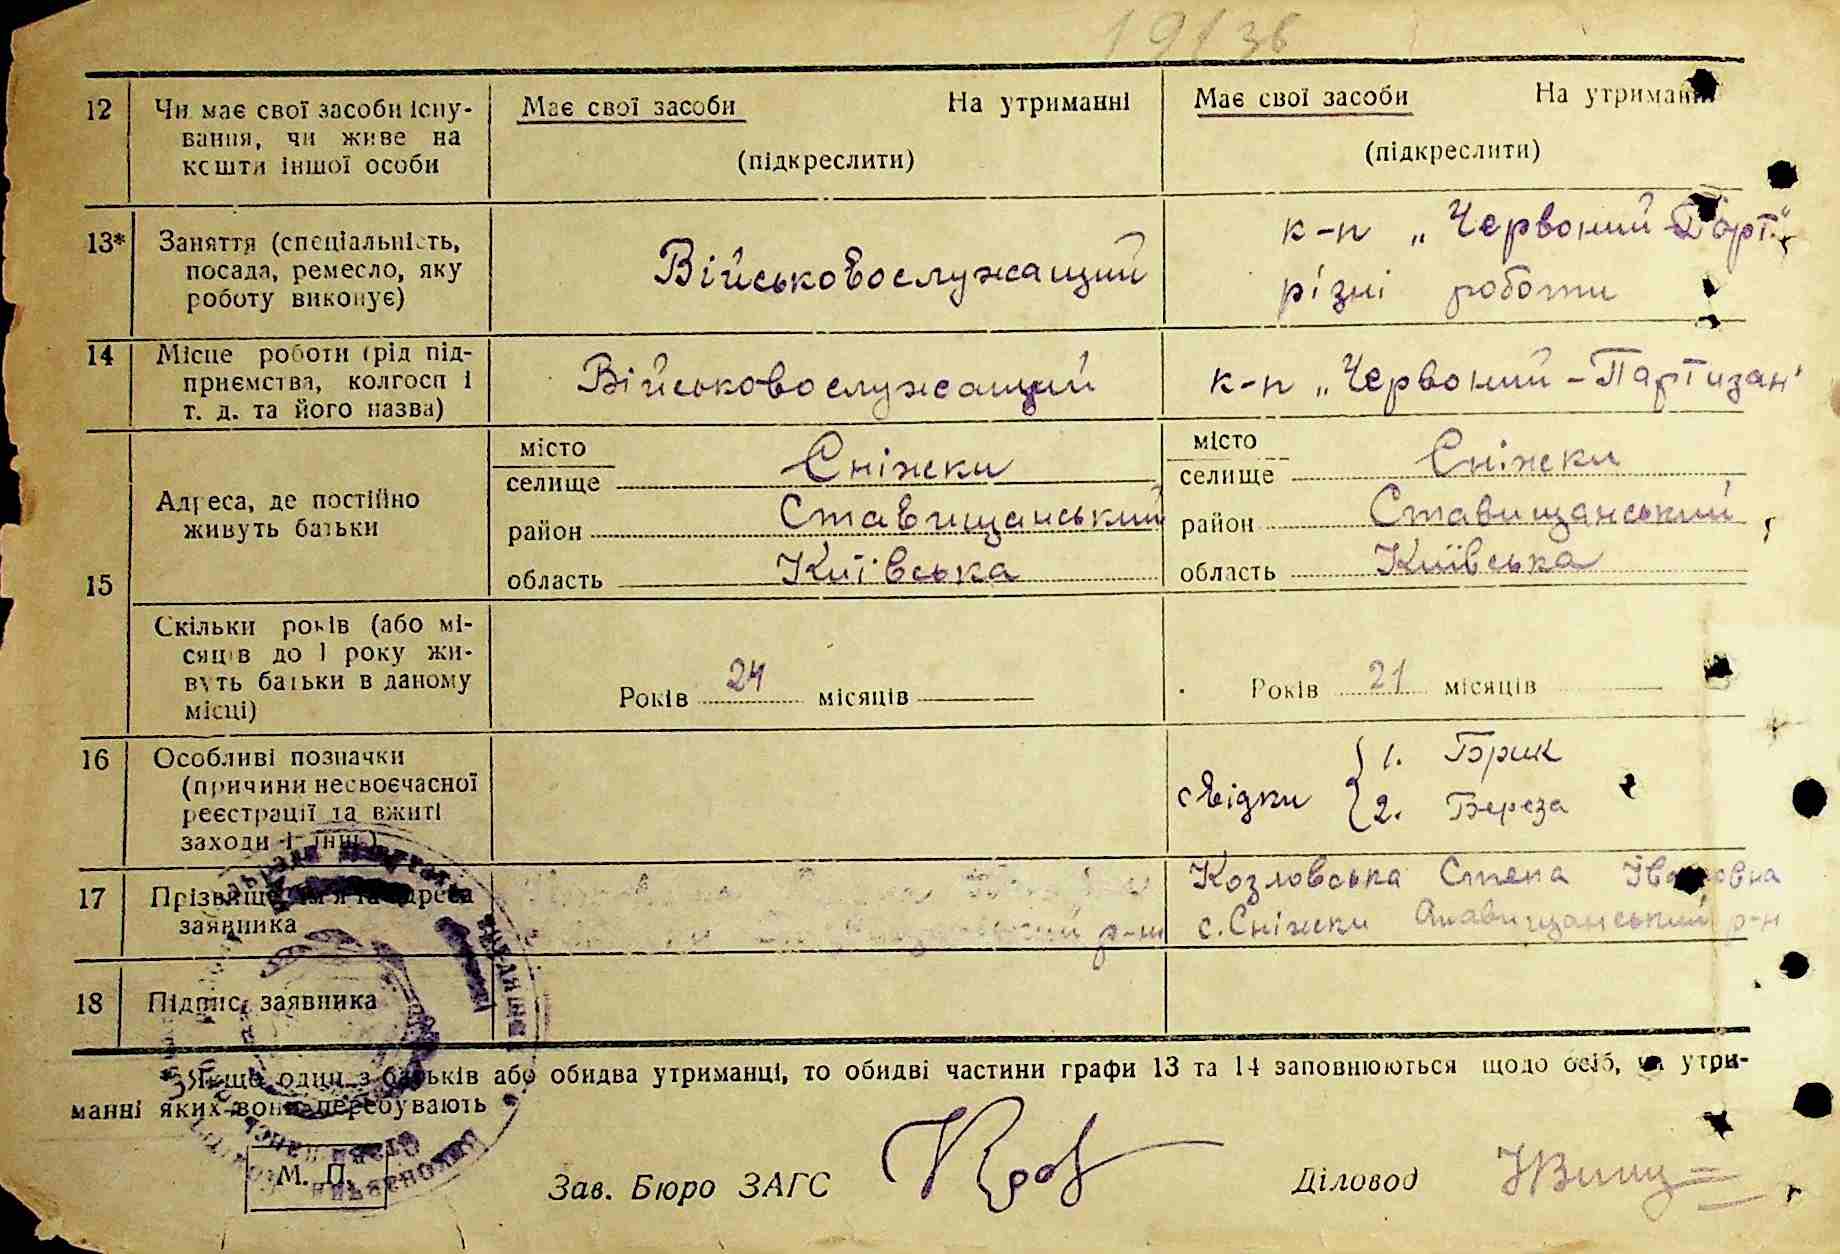 19/36
12 Чи має свої засоби існу-
вання, чи живе на
кошти іншої особи
Має свої засоби На утриманні
(підкреслити)
Має свої засоби На утриманні
(підкреслити)
13* Заняття (спеціальність,
посада, ремесло, яку
роботу виконує)
Військовослужащий
к-п „Червоний Парт."
різні роботи
14 Місце роботи (рід під-
приємства, колгосп і
т. д. та його назва)
Військовослужащий
к-п „Червоний-Партизан"
15 Адреса, де постійно
живуть батьки
місто
селище Сніжки
район Ставищанський
область Київська
місто
селище Сніжки
район Ставищанський
область Київська
Скільки років (або мі-
сяців до 1 року жи-
вуть батьки в даному
місці)
Років 24 місяців
Років 21 місяців
16 Особливі позначки
(причини несвоєчасної
реєстрації та вжиті
заходи і інш.)
свідки 1. Борик
2. Береза
17 Прізвище ім'я та адреса
заявника
р-ну
Козловська Степа Івановна
с. Сніжки Ставищанський р-н
18 Підпис заявника
Якщо один з батьків або обидва утриманці, то обидві частини графи 13 та 14 заповнюються щодо осіб, на утри-
манні яких вони перебувають
М. П.
Зав. Бюро ЗАГС
Діловод